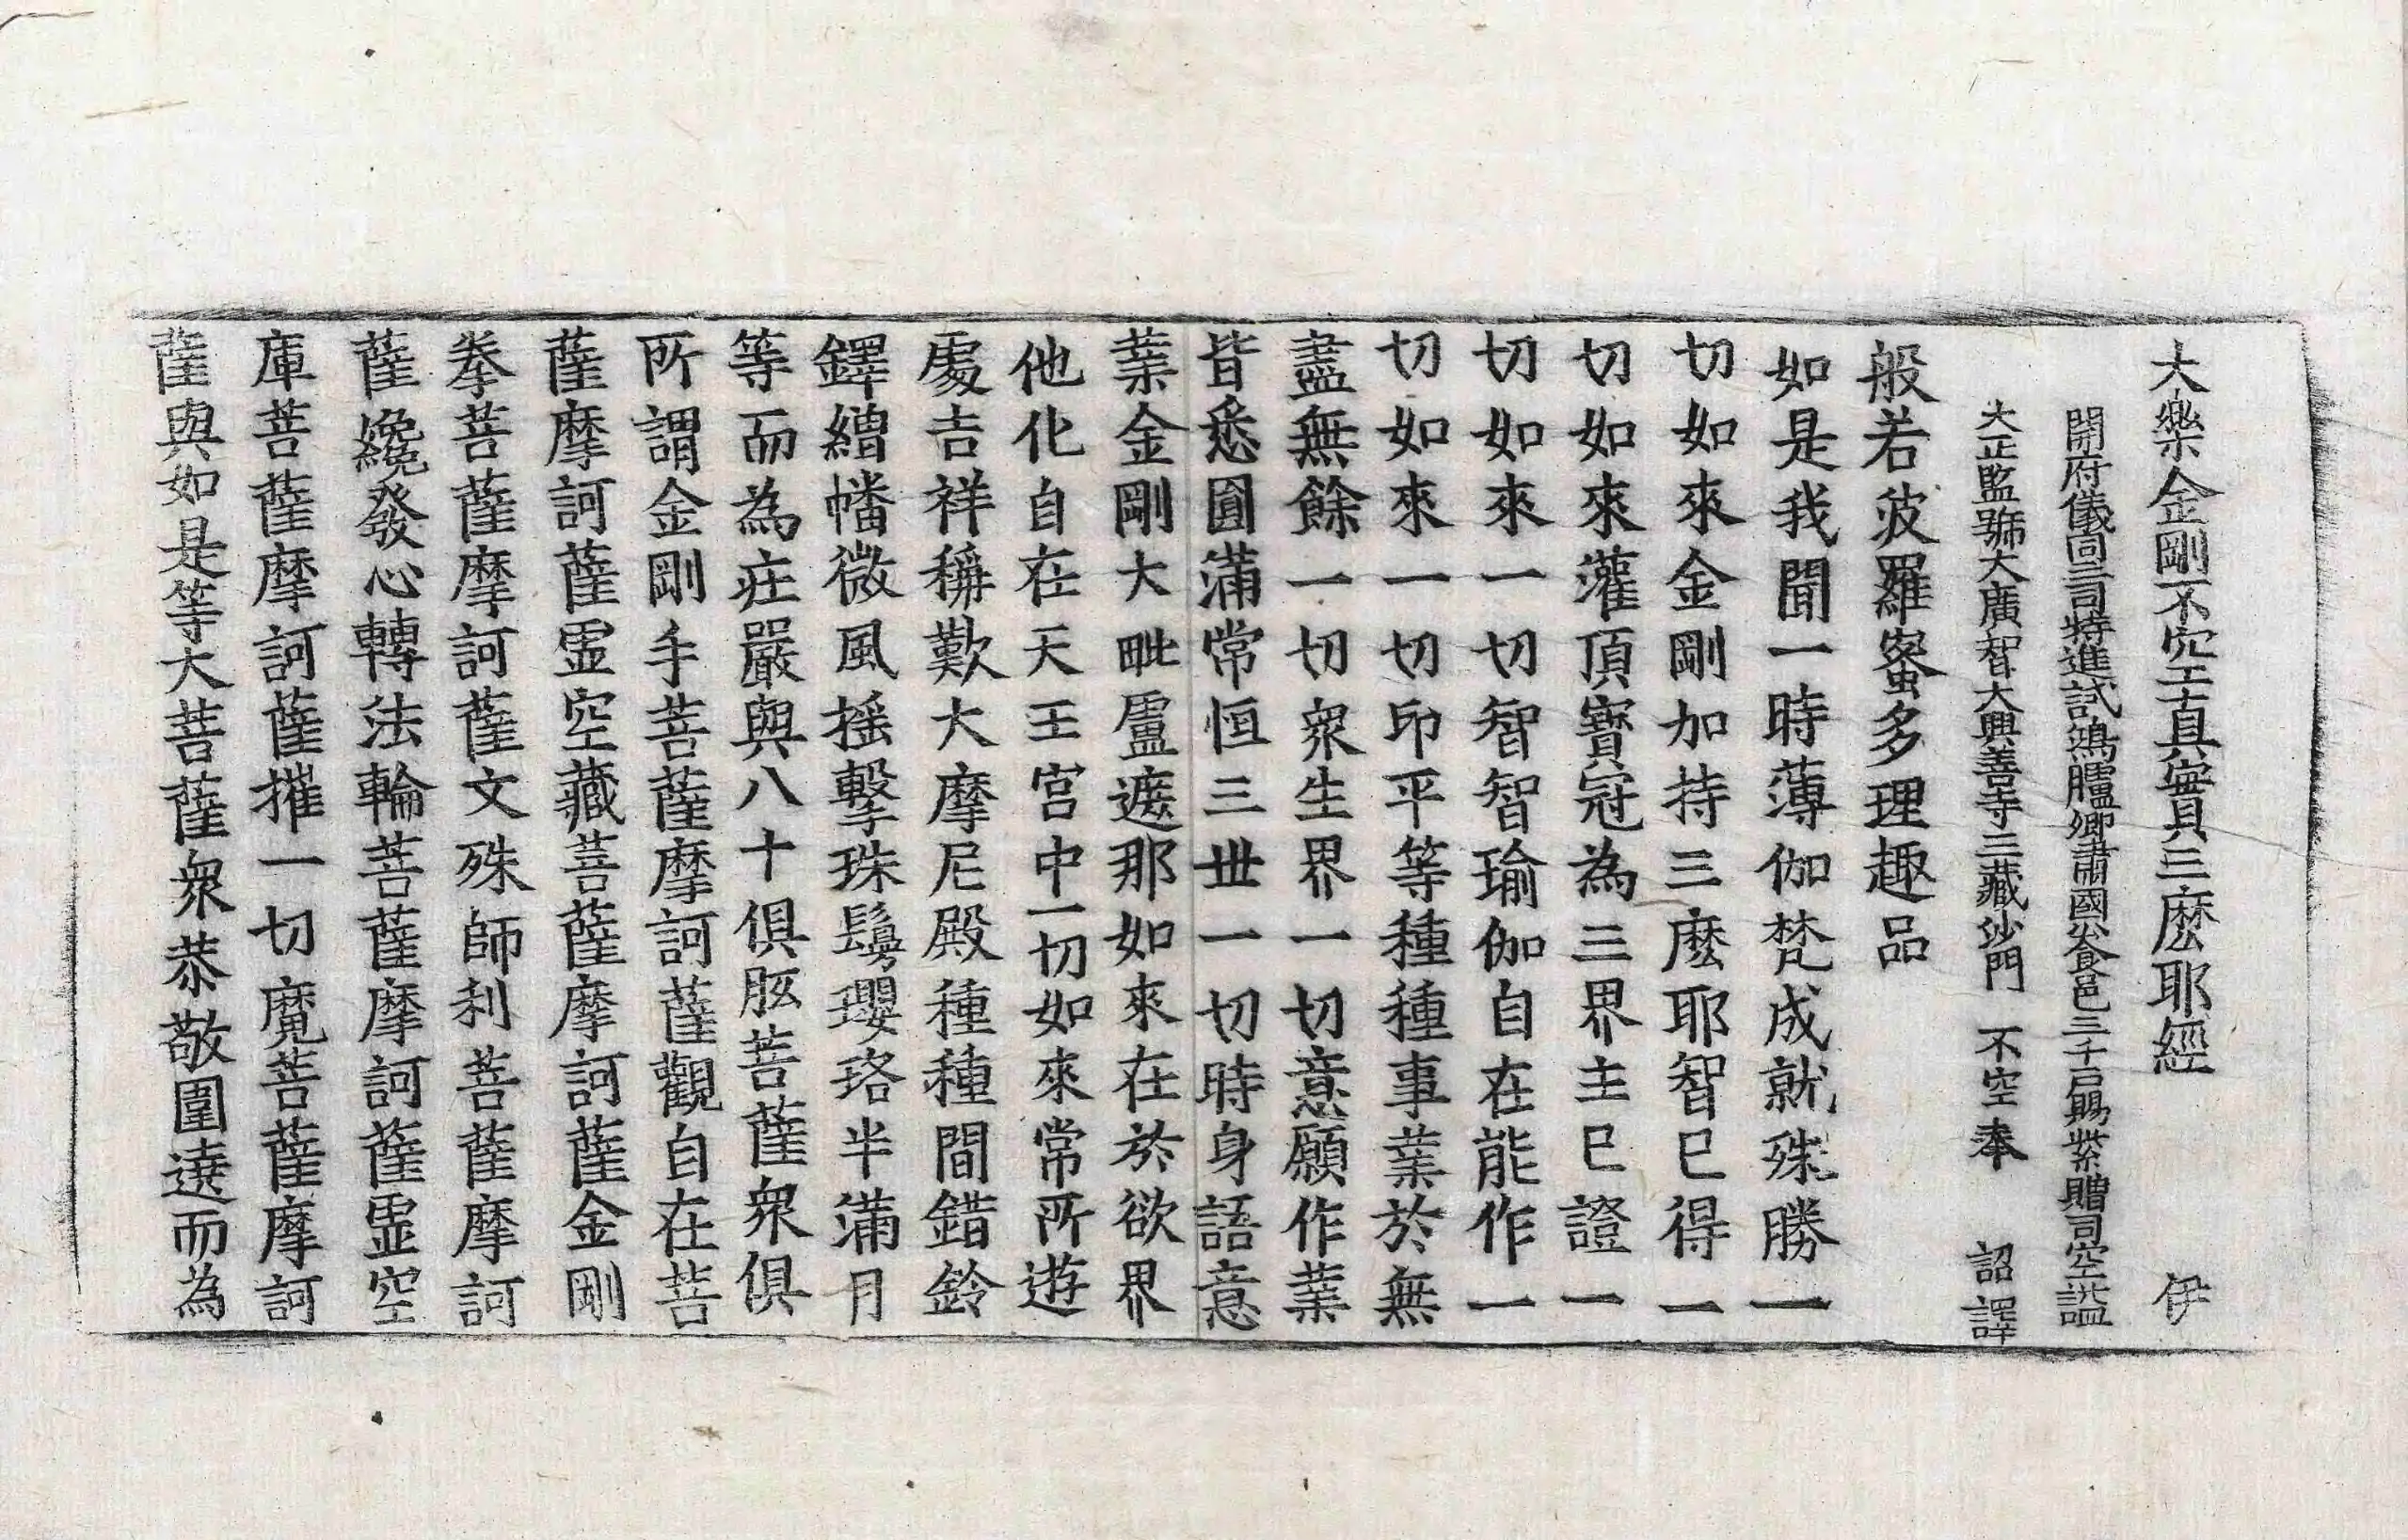 大樂金剛不空真實三麽耶經 伊
開府儀同三司特進試鴻臚卿肅國公食邑三千戶賜紫贈司空謚
大正監號大廣智大興善寺三藏沙門 不空奉 詔譯
般若波羅蜜多理趣品
如是我聞一時薄伽梵成就殊勝一
切如來金剛加持三麽耶智已得一
切如來灌頂寶冠為三界主已證一
切如來一切智智瑜伽自在能作一
切如來一切印平等種種事業於無
盡無餘一切衆生界一切意願作業
皆悉圓滿常恒三世一切時身語意
業金剛大毗盧遮那如來在於欲界
他化自在天王宮中一切如來常所遊
處吉祥稱歎大摩尼殿種種間錯鈴
鐸繒幡微風搖擊珠鬘瓔珞半滿月
等而為莊嚴與八十俱胝菩薩衆俱
所謂金剛手菩薩摩訶薩觀自在菩
薩摩訶薩虛空藏菩薩摩訶薩金剛
拳菩薩摩訶薩文殊師利菩薩摩訶
薩纔發心轉法輪菩薩摩訶薩虛空
庫菩薩摩訶薩摧一切魔菩薩摩訶
薩與如是等大菩薩衆恭敬圍遶而為